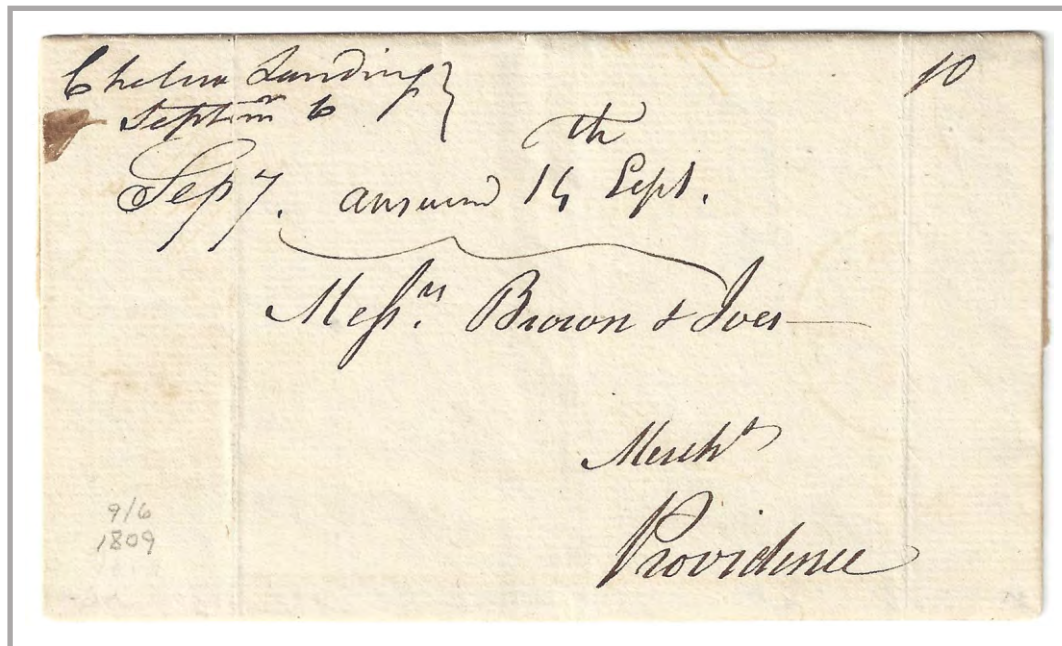 Chelsea Landing }
Septem 6
10
Sep 7. answered 14th Sept.
Messrs. Brown & Ives
Mercht
Providence
9/6
1809